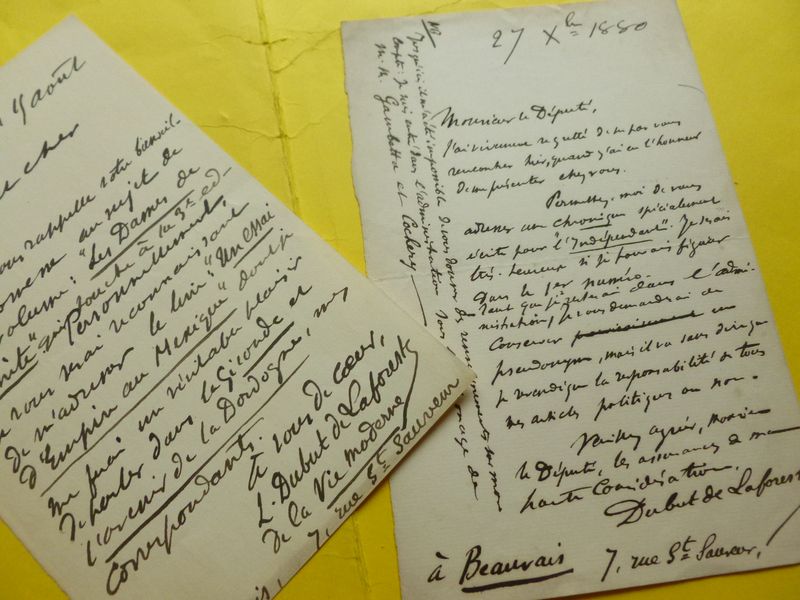 15 août
cher
vous rappelle votre bienveil-
au sujet de
volume: "Les Dames de
qui touche à la 3e éd-
Personnellement,
vous serai reconnaissant
de m'adresser le livre "Un essai
d'Empire au Mexique" dont je
me ferai un véritable plaisir
de parler dans la Gironde et
l'avenir de la Dordogne, mes
correspondants.
à vous de cœur,
L. Dubut de Laforest
de la Vie moderne
7, rue St Sauveur
27 Xbre 1880
Monsieur le Député,
J'ai vivement regretté de ne pas vous
rencontrer hier, quand j'ai eu l'honneur
de me présenter chez vous.
Permettez-moi de vous
adresser une chronique spécialement
écrite pour l'"Indépendant". Je serais
très heureux si je pouvais figurer
dans le 1er numéro.
Tant que je serai dans l'admi-
nistration, je vous demanderai de
conserver un
pseudonyme, mais il va sans dire que
je revendique la responsabilité de tous
mes articles politiques ou non.
Veuillez agréer, Monsieur
le Député, les assurances de ma
haute considération.
Dubut de Laforest
à Beauvais 7, rue St Sauveur,
NB
impossible de vous donner des renseignements sur mon
compte: Je suis entré dans l'administration sous le patronage de
M.M. Gambetta et Cochery